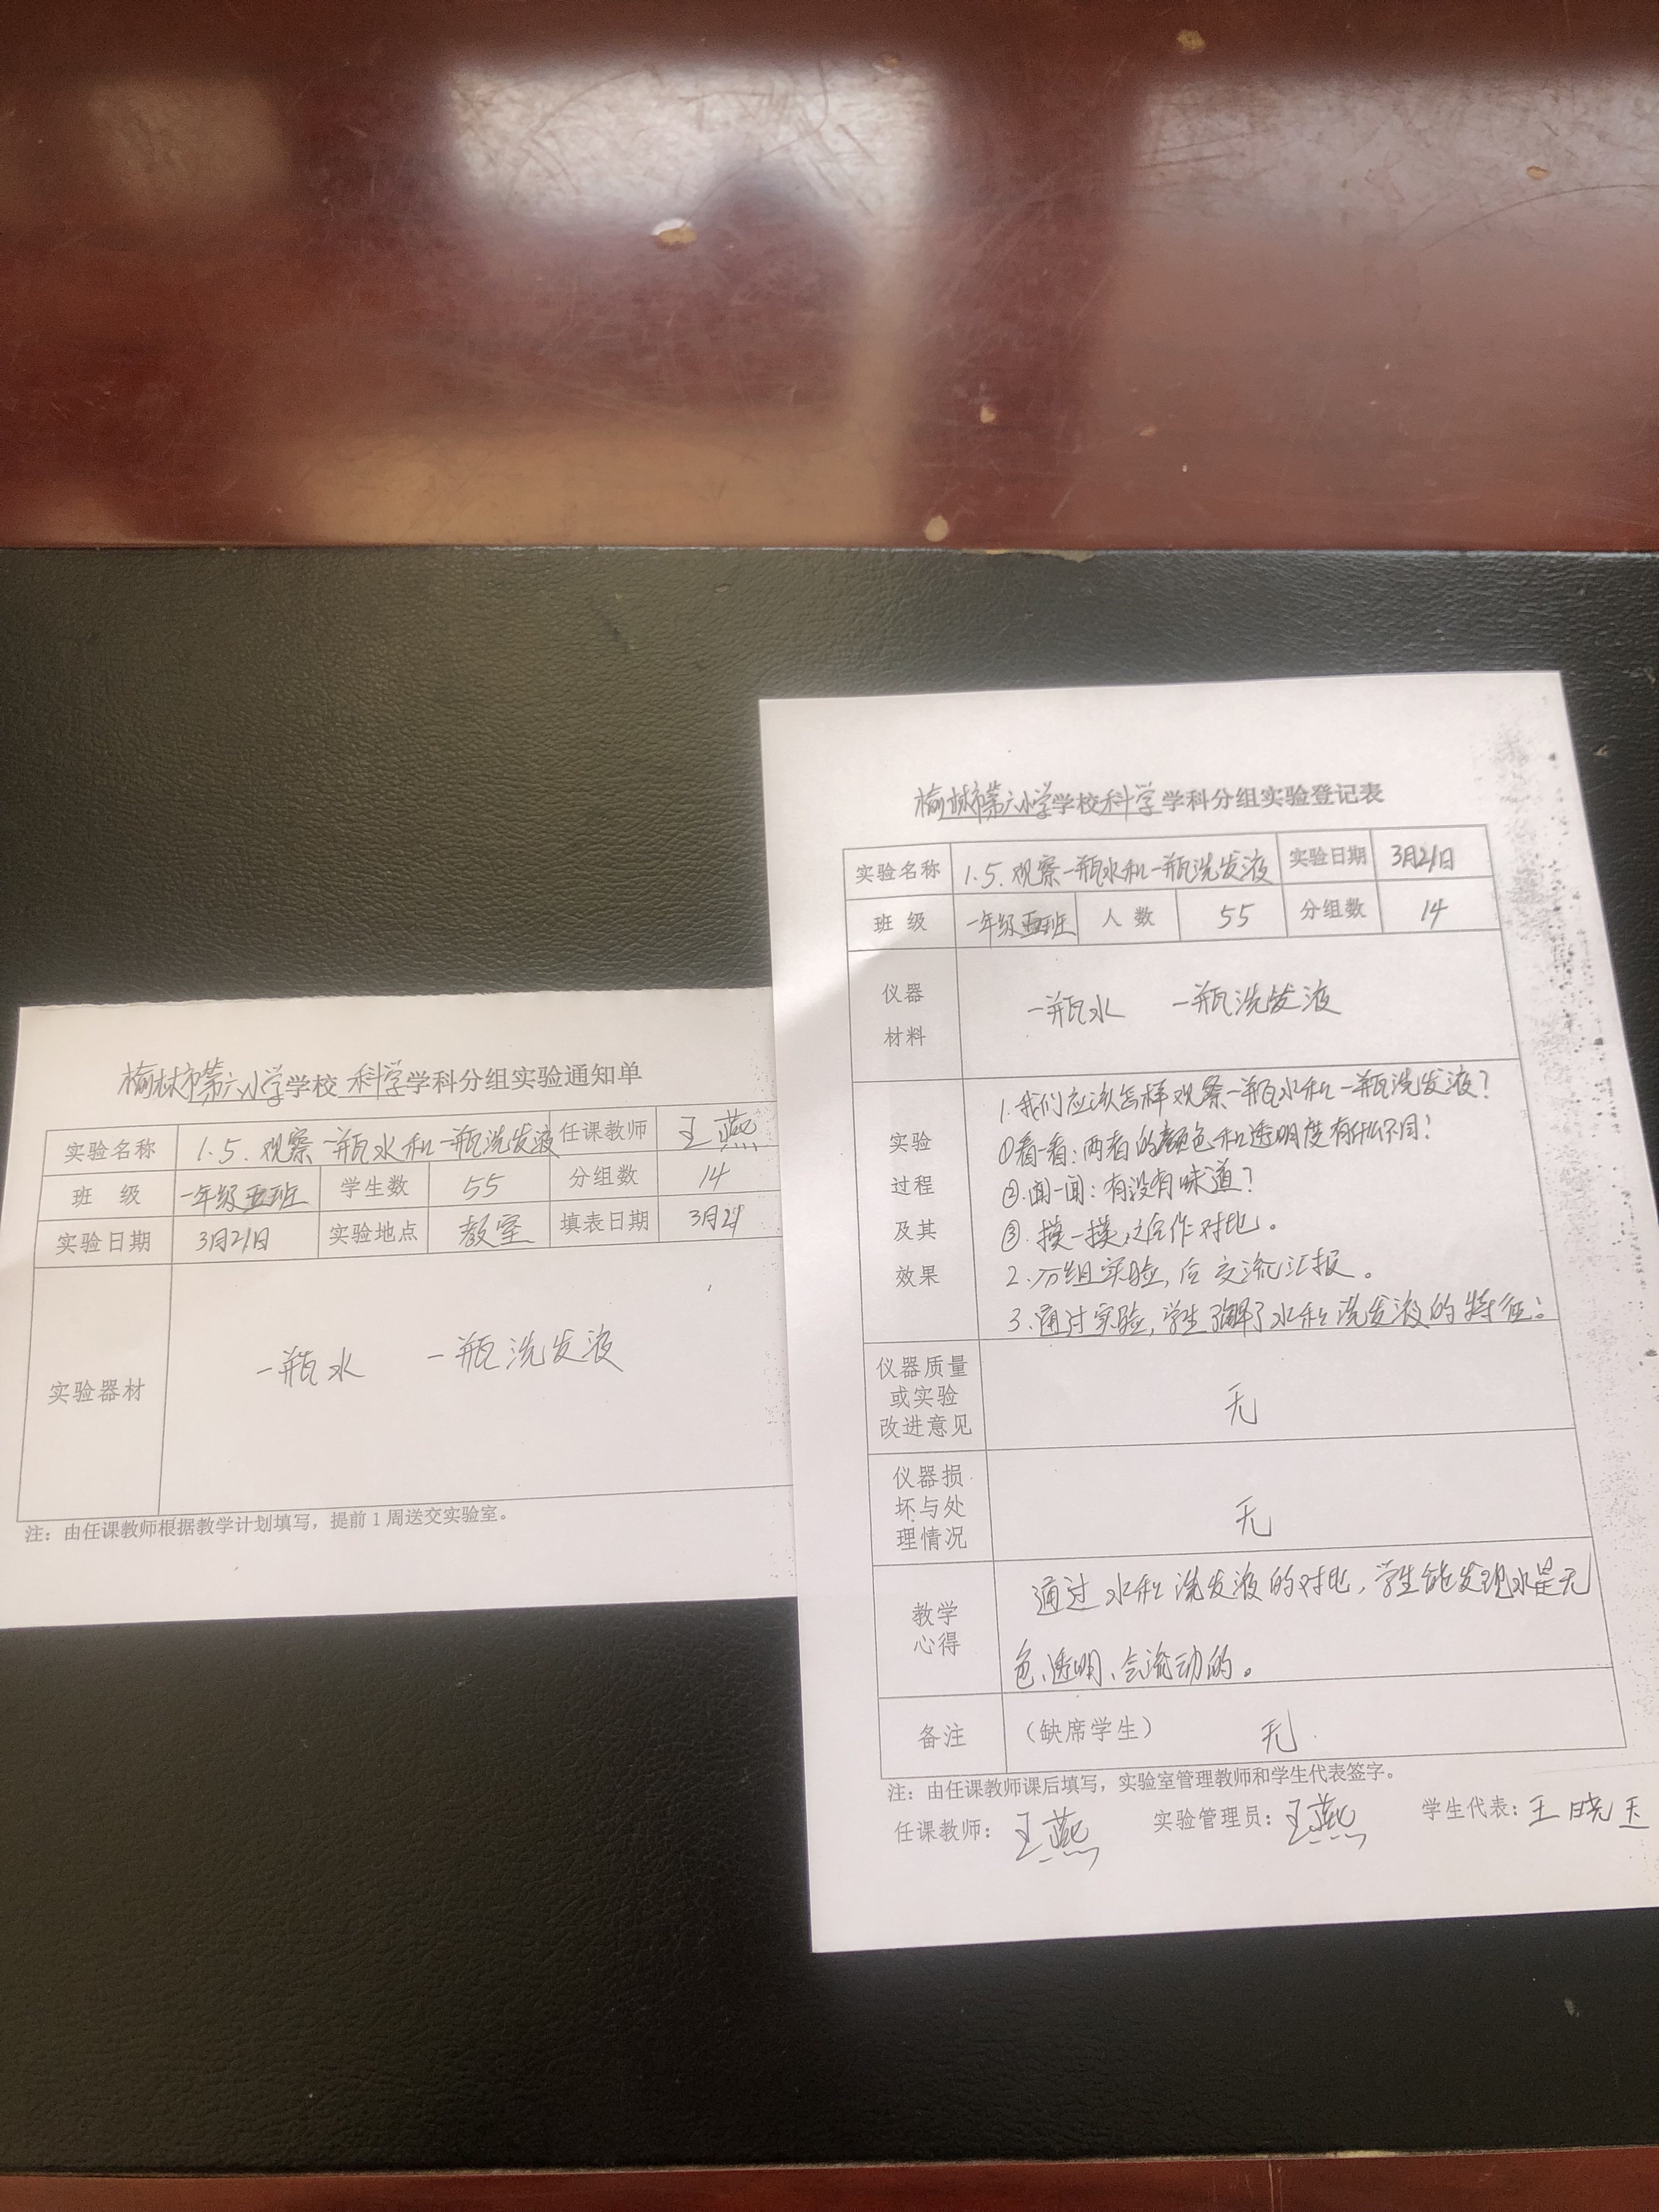 榆林市第六小学学校科学学科分组实验通知单
实验名称 1.5.观察一瓶水和一瓶洗发液 任课教师 王燕
班 级 一年级五班 学生数 55 分组数 14
实验日期 3月21日 实验地点 教室 填表日期 3月21
实验器材 一瓶水 一瓶洗发液
注：由任课教师根据教学计划填写，提前1周送交实验室。
榆林市第六小学学校科学学科分组实验登记表
实验名称 1.5.观察一瓶水和一瓶洗发液 实验日期 3月21日
班 级 一年级五班 人 数 55 分组数 14
仪器
材料
一瓶水 一瓶洗发液
实验
过程
及其
效果
1.我们应该怎样观察一瓶水和一瓶洗发液？
①看一看：两者的颜色和透明度有什么不同！
②.闻一闻：有没有味道？
③.摸一摸，合作对比。
2.分组实验，后交流汇报。
3.通过实验，学生了解了水和洗发液的特征。
仪器质量
或实验
改进意见
无
仪器损
坏与处
理情况
无
教学
心得
通过水和洗发液的对比，学生能发现水是无
色、透明、会流动的。
备注 （缺席学生） 无
注：由任课教师课后填写，实验室管理教师和学生代表签字。
任课教师：王燕 实验管理员：王燕 学生代表：王晓玉